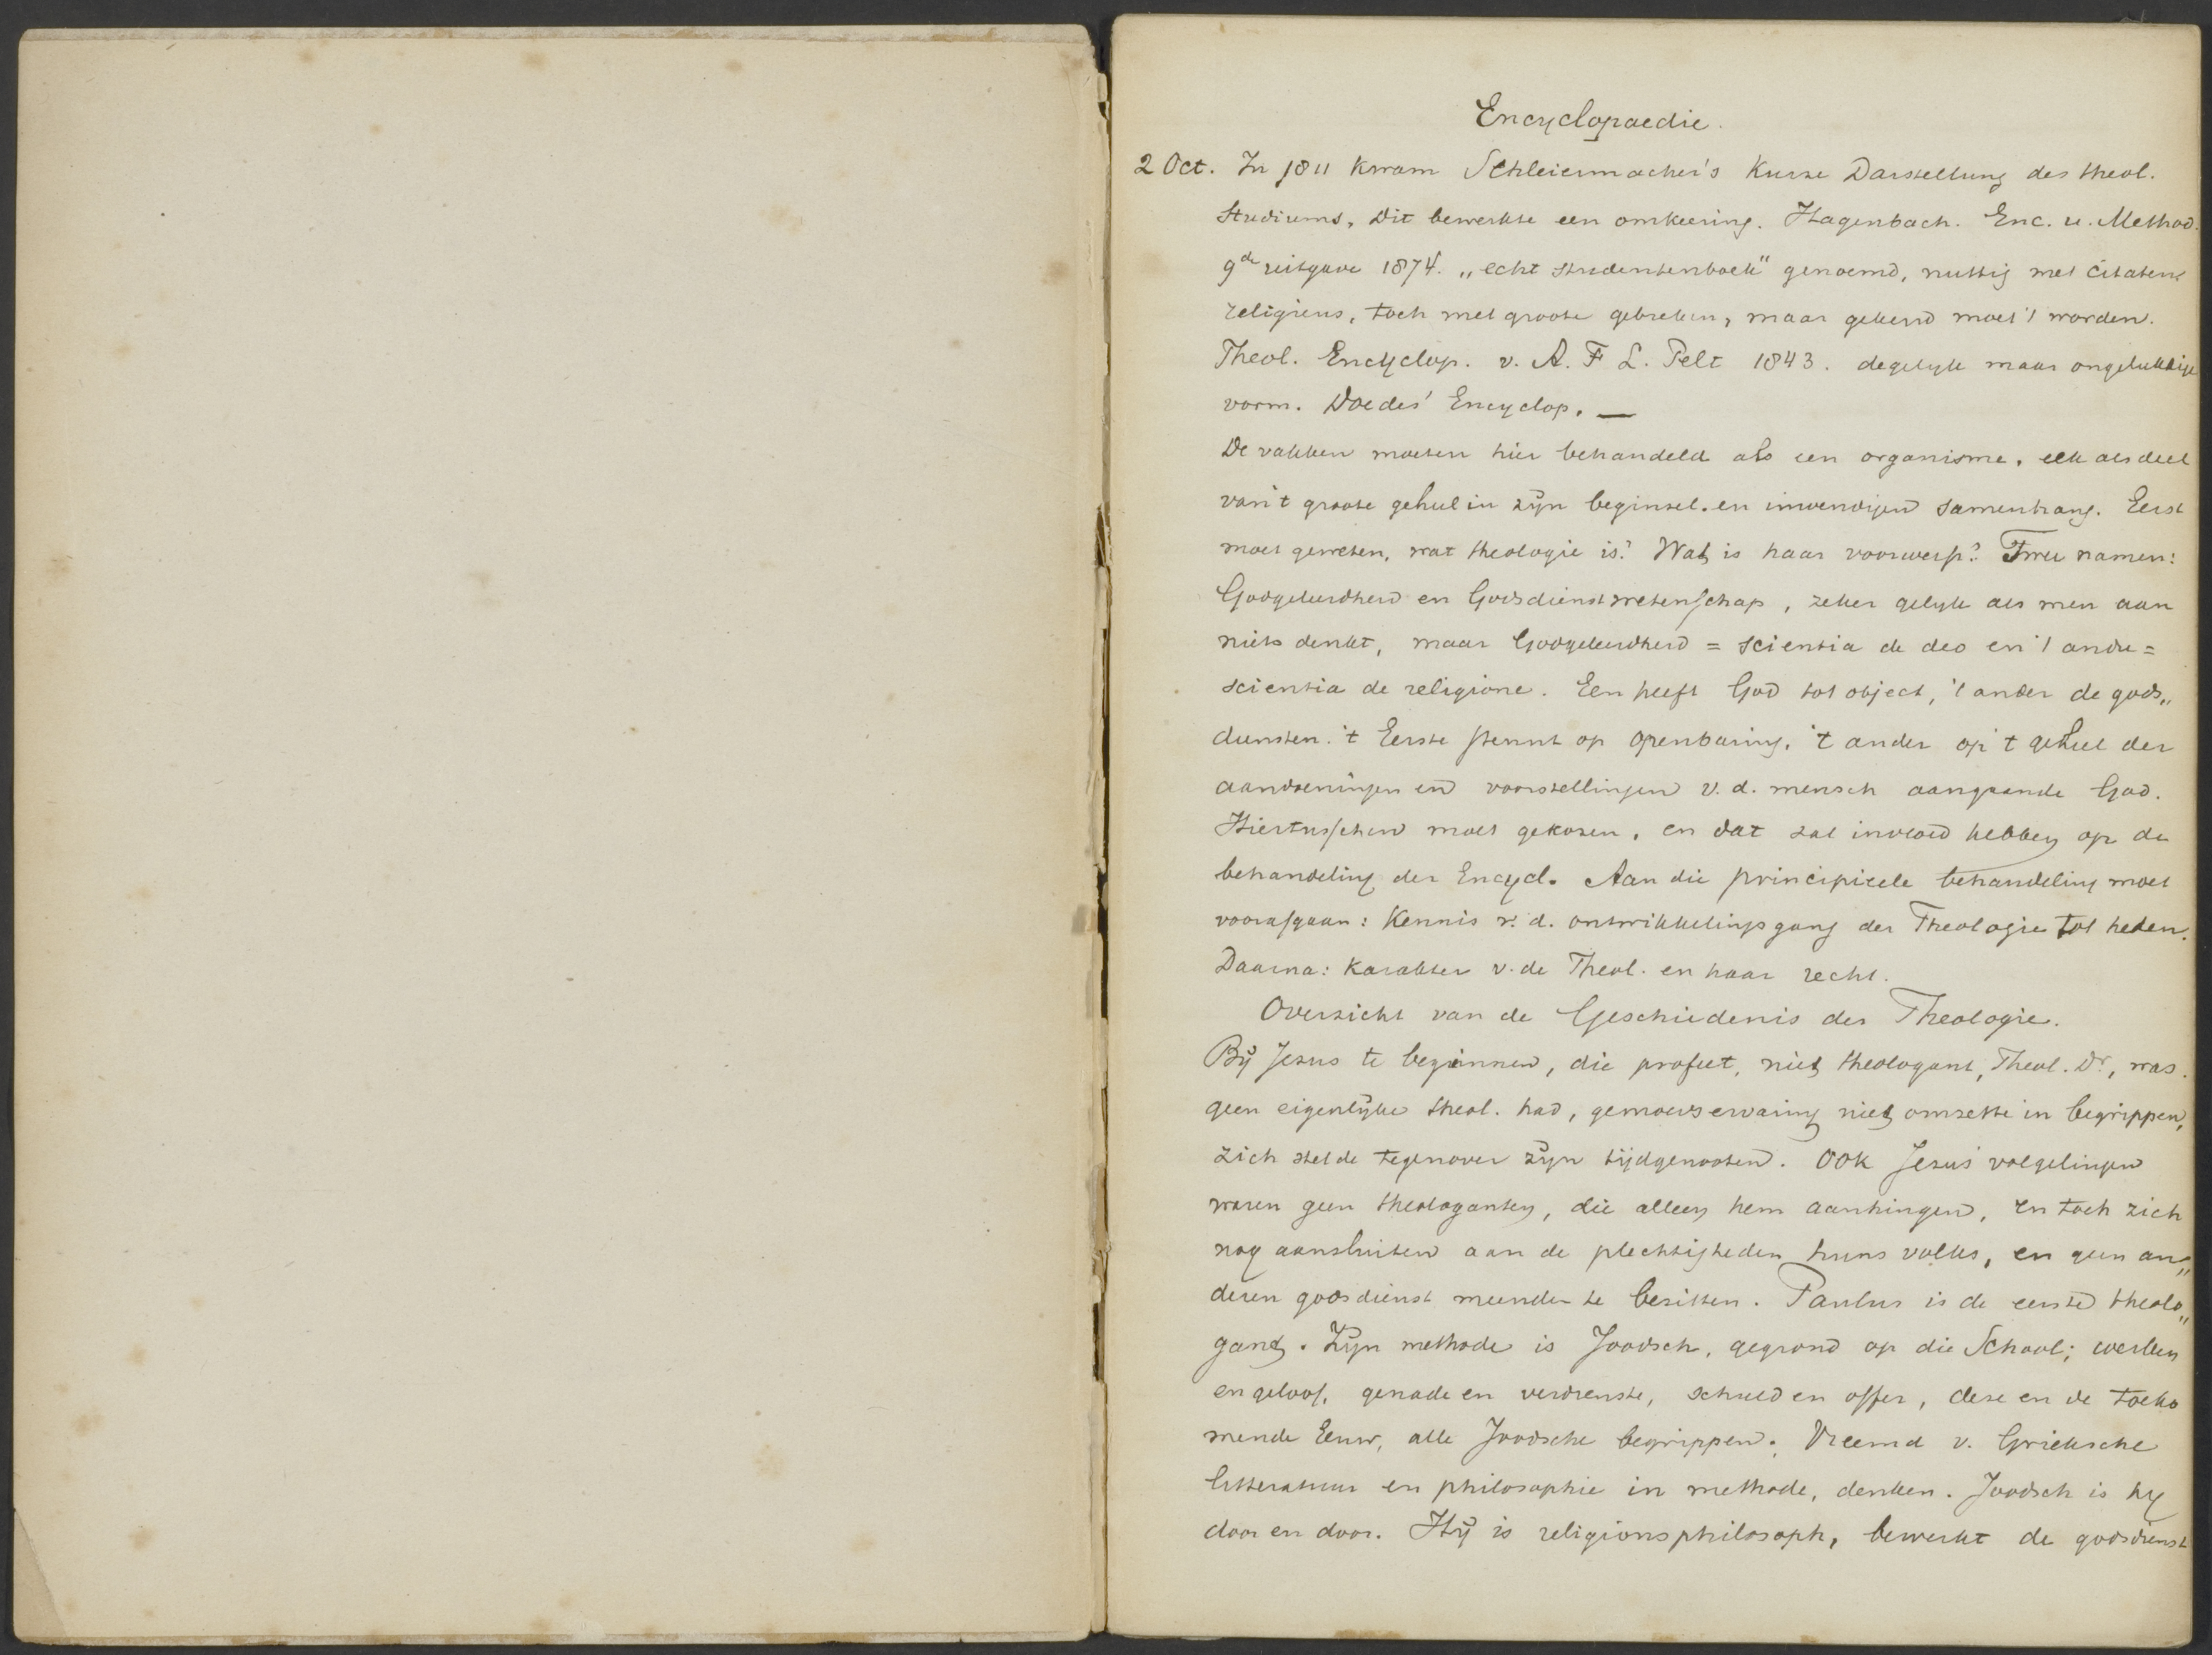 Encyclopaedie.
2 Oct. In 1811 kwam Schleiermacher's Kurze Darstellung des theol.
Studiums, Dit bewerkte een omkeering. Hagenbach. Enc. u. Method.
9de uitgave 1874. „echt studentenboek" genoemd, nuttig met citaten
religieus, toch met groote gebreken, maar gekend moet 't worden.
Theol. Encyclop. v. A. F L. Pelt 1843. degelyk maar ongelukkige
vorm. Doedes' Encyclop. —
De vakken moeten hier behandeld als een organisme, elk als deel
van 't groote geheel in zijn beginsel en inwendigen samenhang. Eerst
moet geweten, wat theologie is? Wat is haar voorwerp? Twee namen:
Godgeleerdheid en Godsdienstwetenschap, zeker gelyk als men aan
niets denkt, maar Godgeleerdheid = scientia de deo en 't andre =
scientia de religione. Een heeft God tot object, 't ander de gods„
diensten. 't Eerste steunt op openbaring, 't ander op 't geheel der
aandoeningen en voorstellingen v. d. mensch aangaande God.
Hiertusschen moet gekozen, en dat zal invloed hebben op de
behandeling der Encycl. Aan die principieele behandeling moet
voorafgaan: Kennis v. d. ontwikkelingsgang der Theologie tot heden.
Daarna: karakter v. de Theol. en haar recht.
Overzicht van de Geschiedenis der Theologie.
Bij Jezus te beginnen, die profeet, niet theologant, Theol. Dr., was.
geen eigenlijke theol. had, gemoedservaring niet omzette in begrippen,
zich stelde tegenover zijn tijdgenooten. Ook Jezus' volgelingen
waren geen theologanten, die alleen hem aanhingen, en toch zich
nog aansluiten aan de plechtigheden huns volks, en geen an„
deren godsdienst meenden te bezitten. Paulus is de eerste theolo„
gant. Zijn methode is Joodsch, gegrond op die School; werken
en geloof, genade en verdienste, schuld en offer, deze en de toeko
mende Eeuw, alle Joodsche begrippen. Vreemd v. Grieksche
litteratuur en philosophie in methode, denken. Joodsch is hy
door en door. Hij is religionsphilosoph, bewerkt de godsdienst